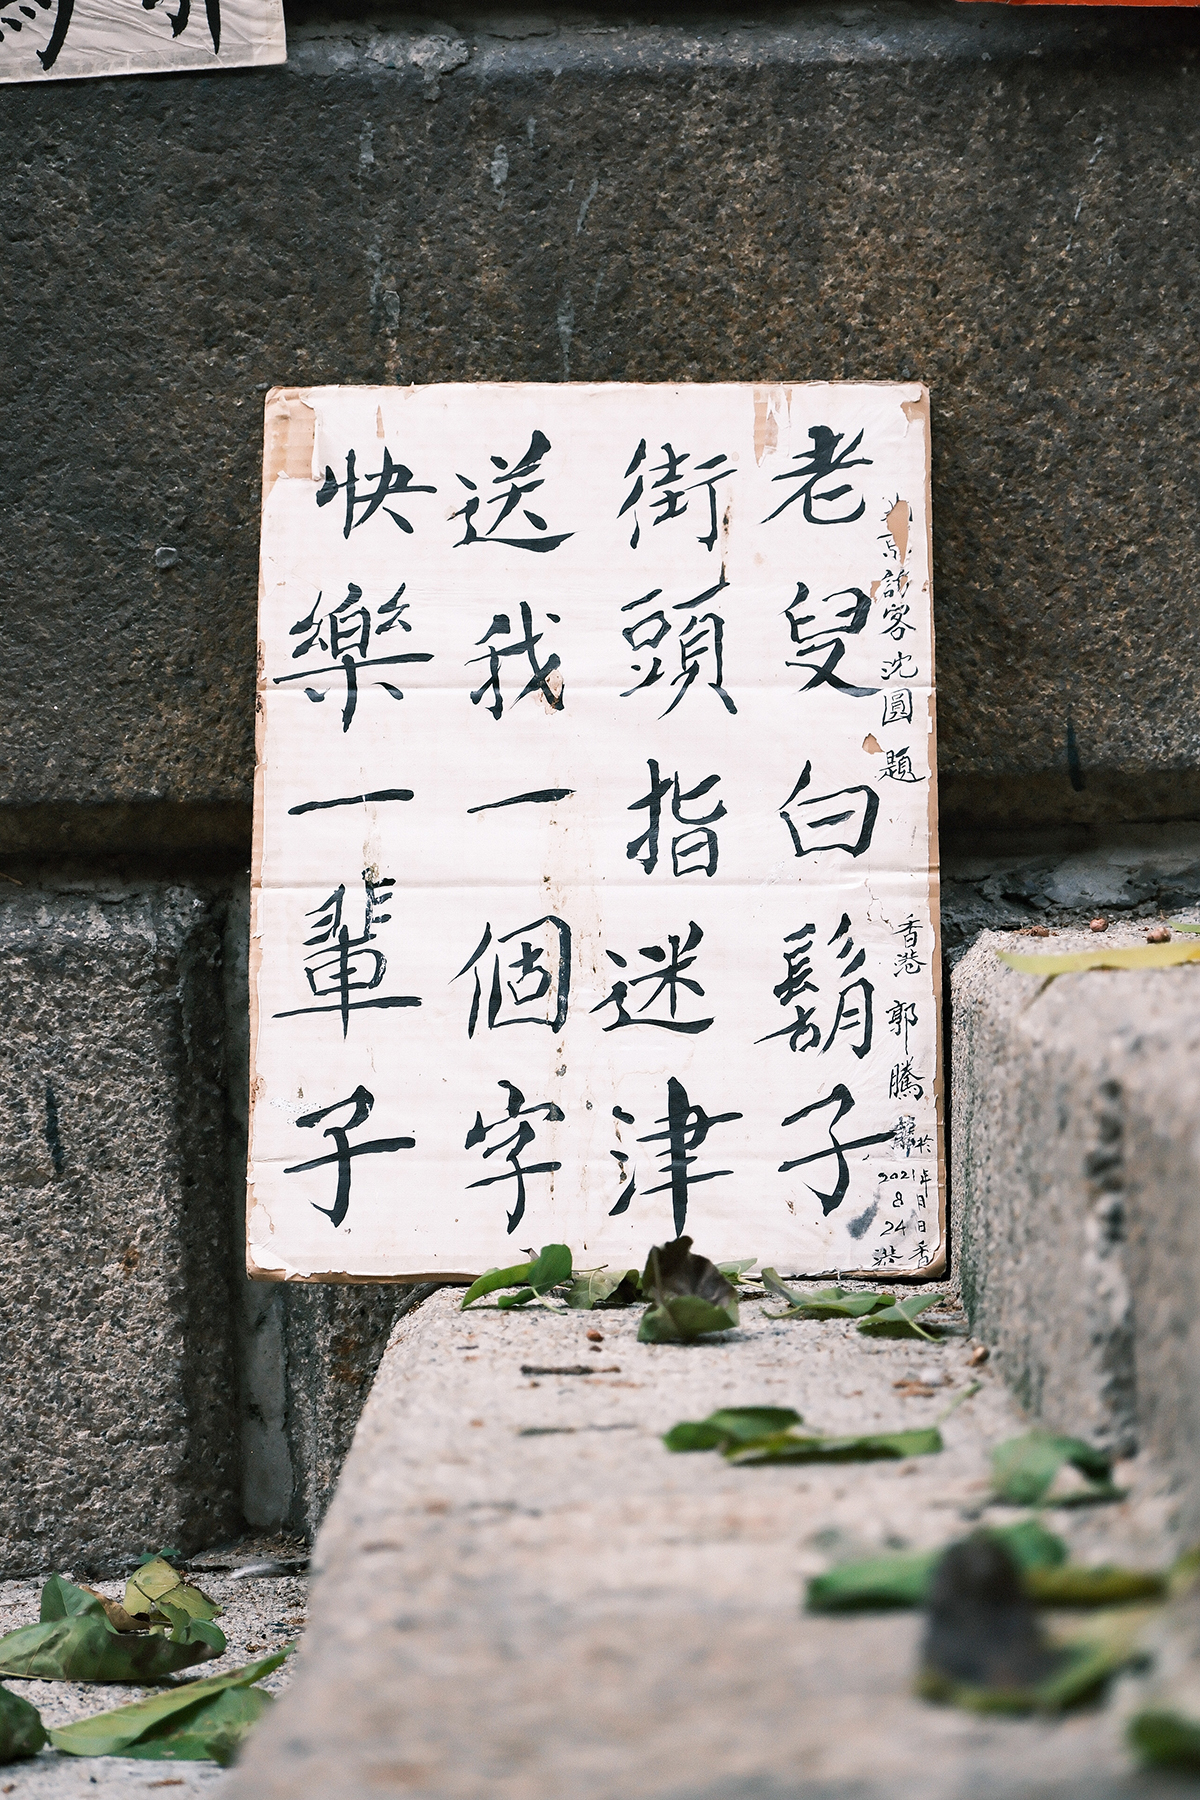 老叟白鬍子
街頭指迷津
送我一個字
快樂一輩子
京訪客沈圓題
香港郭騰
於
2021年
8月
24日
香港